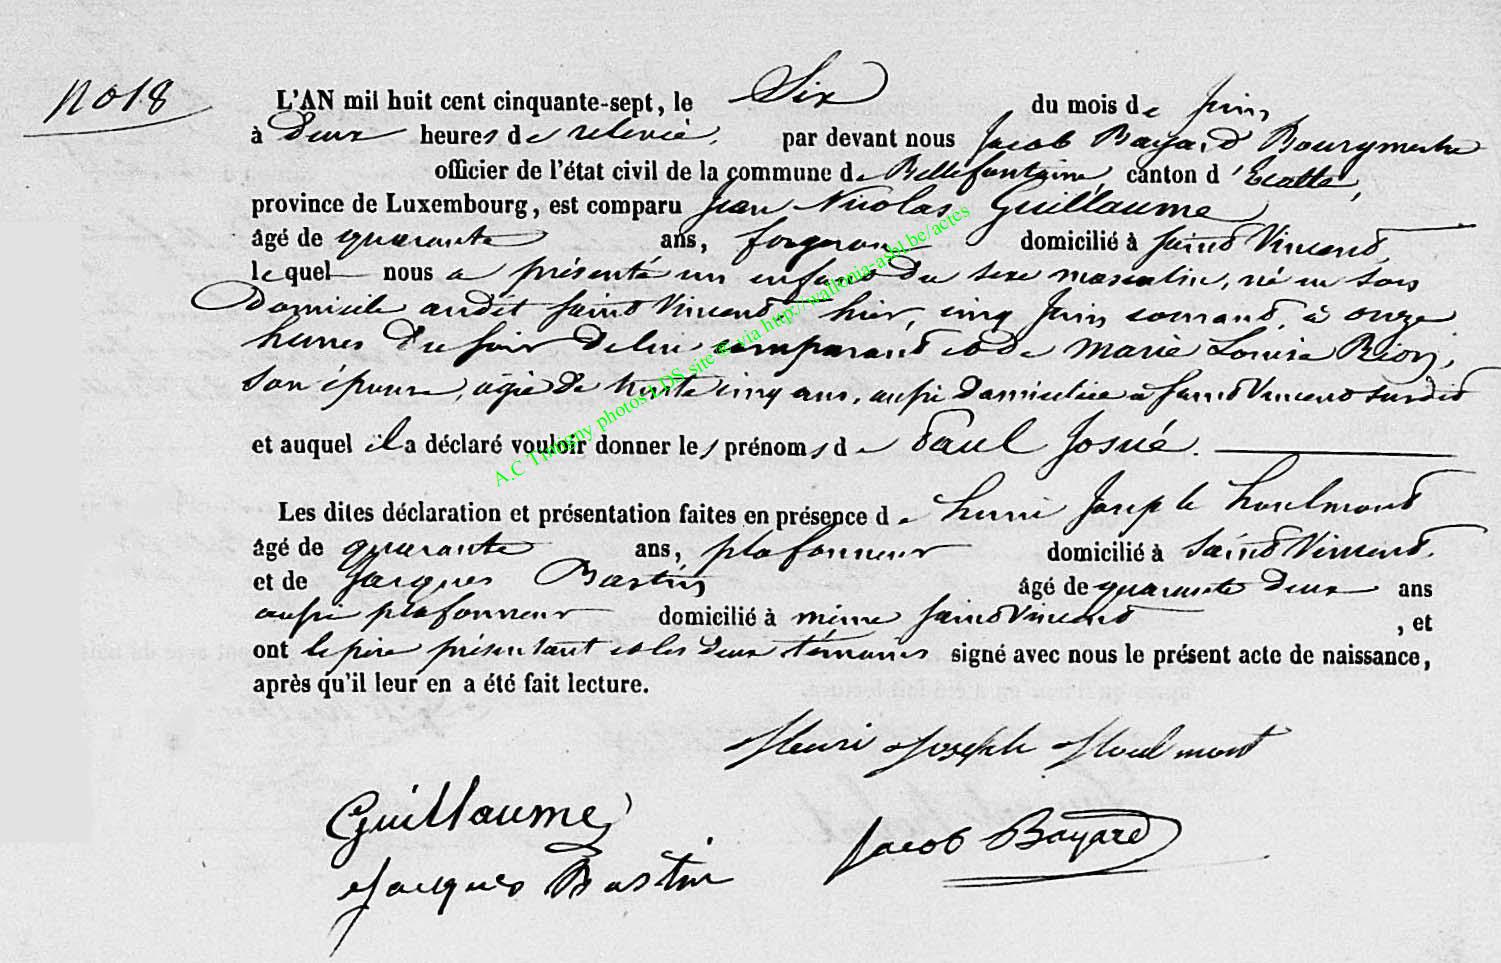 No 18
L'AN mil huit cent cinquante-sept, le Six du mois de Juin
à deux heures de relevée, par devant nous Jacob Bayard Bourgmestre
officier de l'état civil de la commune de Bellefontaine, canton d'Etalle,
province de Luxembourg, est comparu Jean Nicolas Guillaume
âgé de quarante ans, forgeron domicilié à Saint Vincent,
lequel nous a présenté un enfant du sexe masculin, né en son
domicile audit Saint Vincent, hier, cinq Juin courant, à onze
heures du soir de lui comparant et de Marie Louise Rion,
son épouse, agée de trente cinq ans, aussi domiciliée à Saint Vincent susdit
et auquel il a déclaré vouloir donner les prénoms de Paul Josué.
Les dites déclaration et présentation faites en présence de henri Joseph houlmont
âgé de quarante ans, plafonneur domicilié à Saint Vincent.
et de Jacques Bastin âgé de quarante deux ans
aussi plafonneur domicilié à même Saint Vincent, et
ont le père présentant et les deux témoins signé avec nous le présent acte de naissance,
après qu'il leur en a été fait lecture.
Henri Joseph Houlmont
Guillaume
Jacob Bayard
Jacques Bastin
A.C Tintigny photos LDS site © via http://wallonia-asbl.be/actes